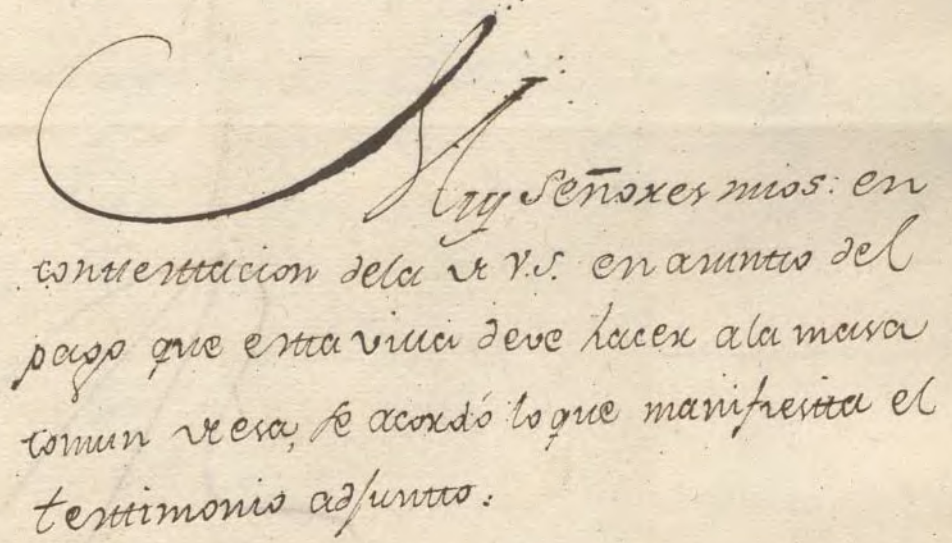 Muy Señores mios: en
conttesttacion dela de V.S. en asuntto del
pago que estta villa deve hacer a la masa
comun de esa, se acordó lo que manifiestta el
testtimonio adjuntto.